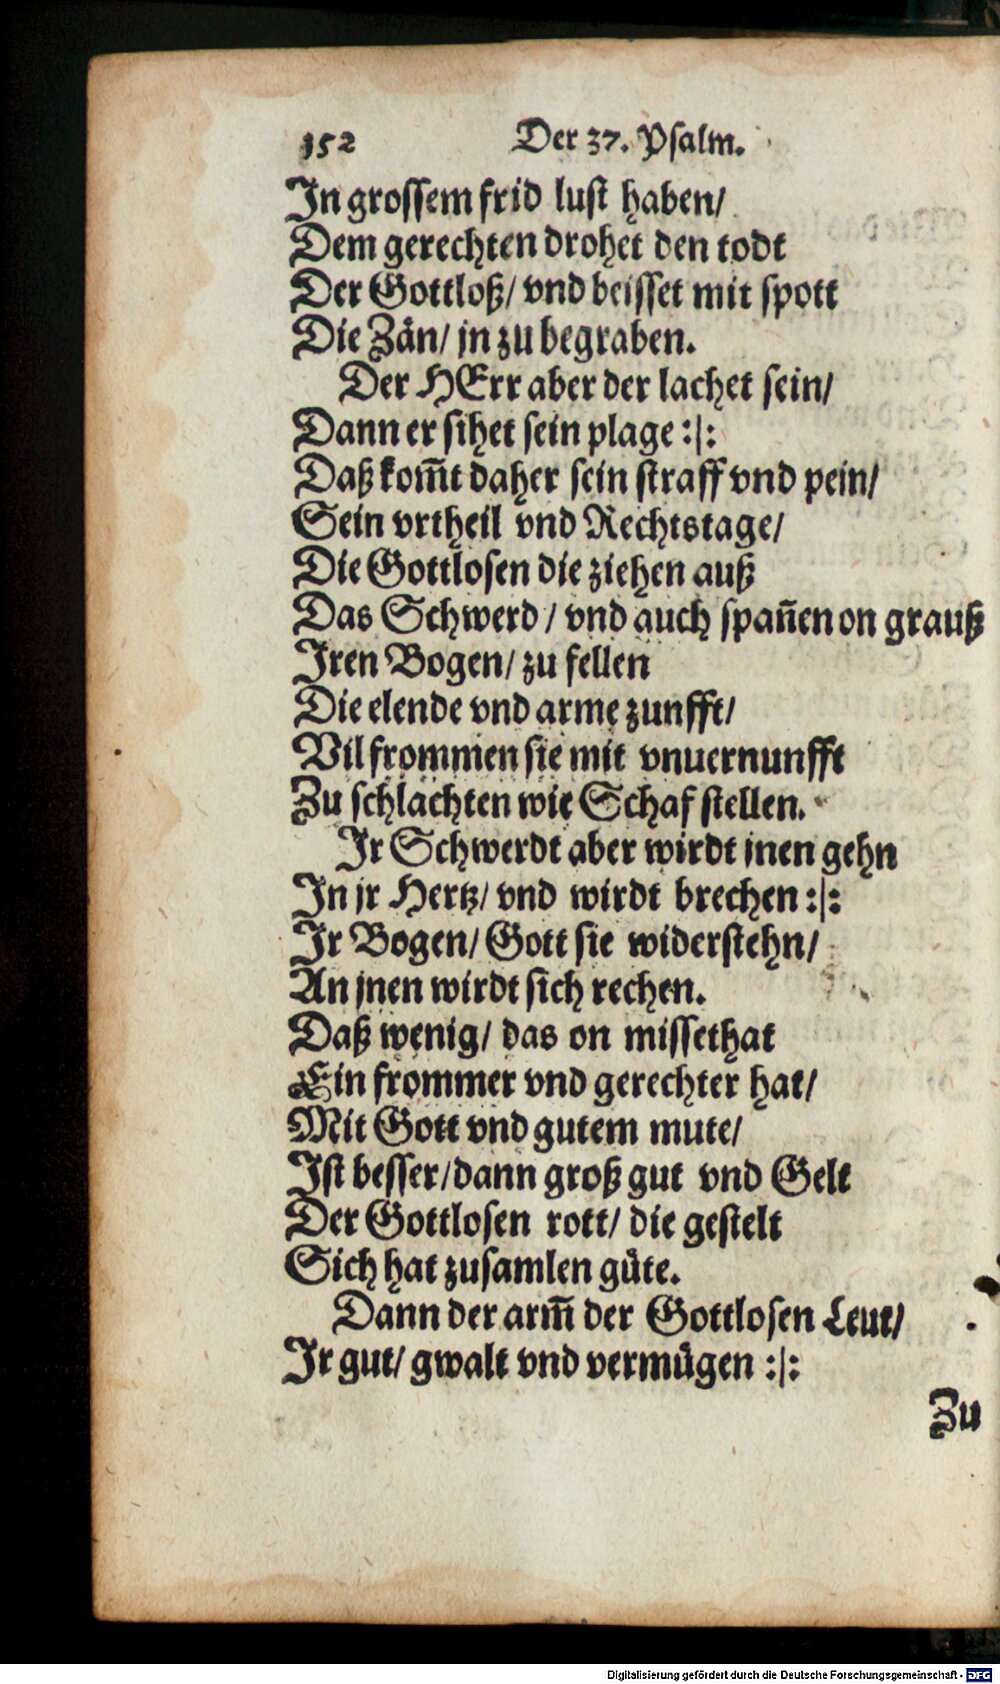 152 Der 37. Psalm.
In grossem frid lust haben/
Dem gerechten drohet den todt
Der Gottloß/ vnd beisset mit spott
Die Zän/ jn zu begraben.
Der HErr aber der lachet sein/
Dann er sihet sein plage :|:
Daß kom̃t daher sein straff vnd pein/
Sein vrtheil vnd Rechtstage/
Die Gottlosen die ziehen auß
Das Schwerd / vnd auch span̄en on grauß
Iren Bogen/ zu fellen
Die elende vnd arme zunfft/
Vil frommen sie mit vnuernunfft
Zu schlachten wie Schaf stellen.
Ir Schwerdt aber wirdt jnen gehn
In jr Hertz/ vnd wirdt brechen :|:
Ir Bogen/ Gott sie widerstehn/
An jnen wirdt sich rechen.
Daß wenig/ das on missethat
Ein frommer vnd gerechter hat/
Mit Gott vnd gutem mute/
Ist besser/dann groß gut vnd Gelt
Der Gottlosen rott/ die gestelt
Sich hat zusamlen güte.
Dann der arm̃ der Gottlosen Leut/
Ir gut/ gwalt vnd vermügen :|:
Zu
Digitalisierung gefördert durch die Deutsche Forschungsgemeinschaft - DFG